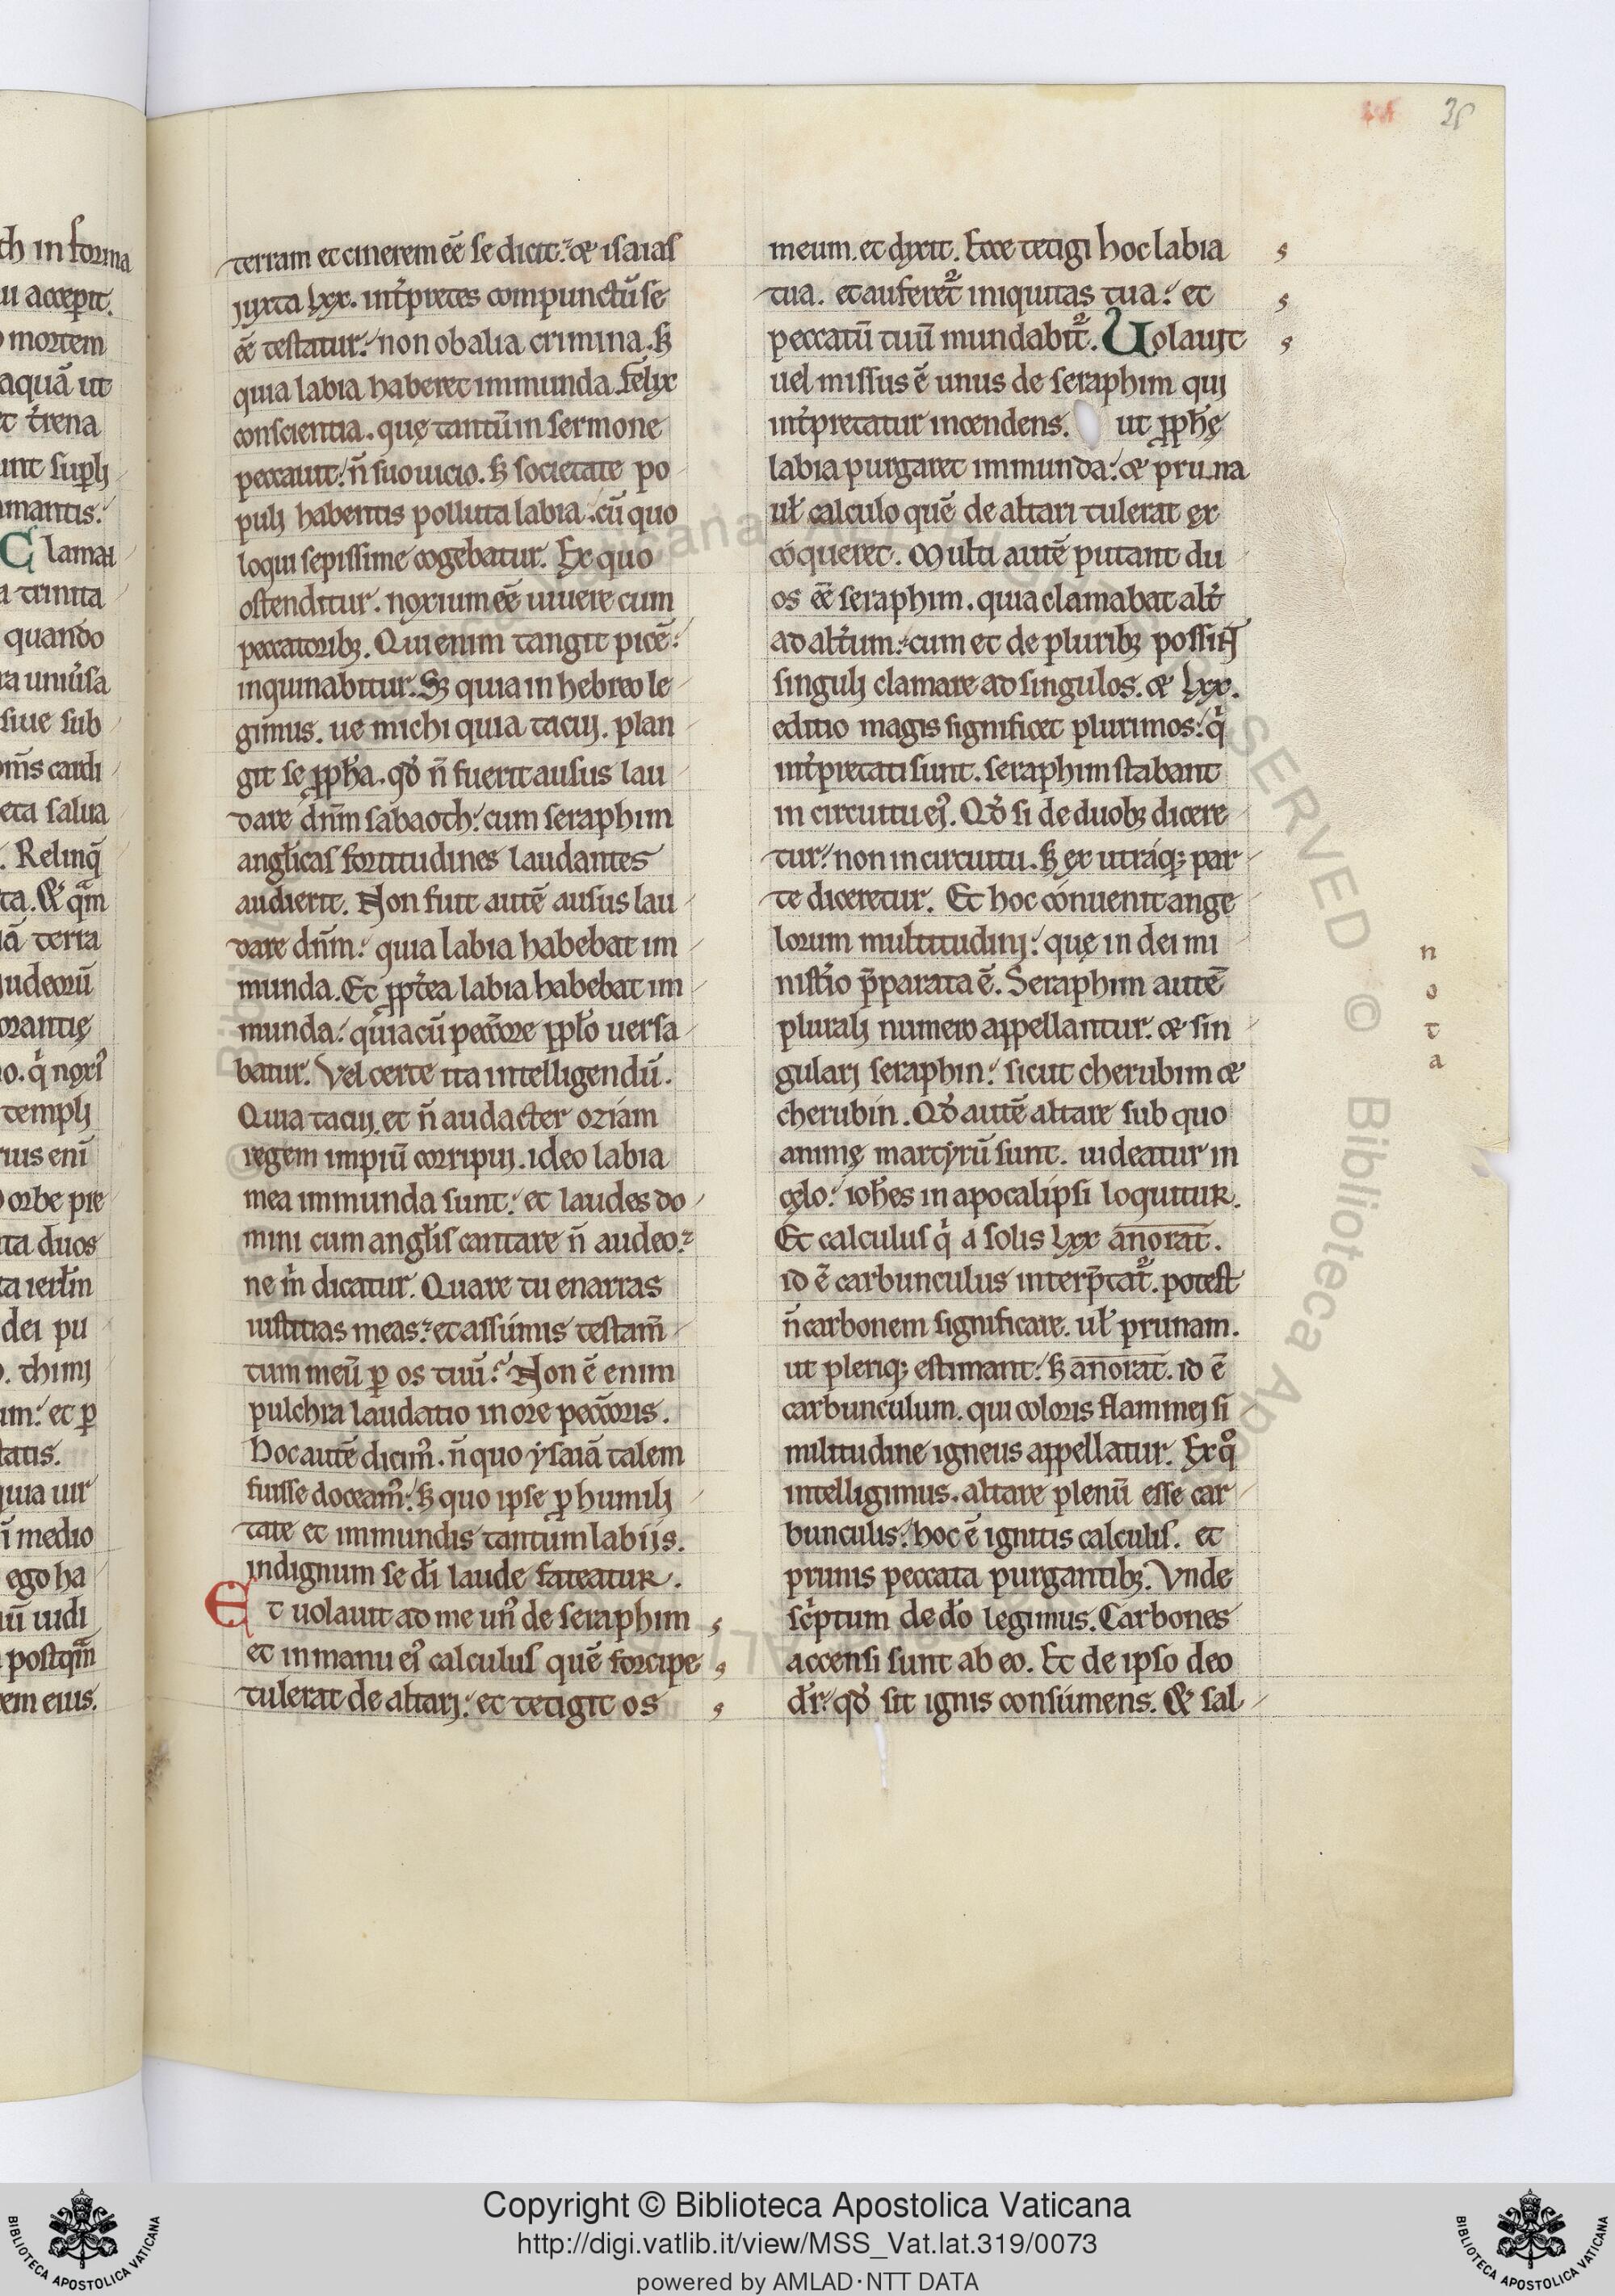 35
th in forma
u accepit.
mortem
aquā ut
t̾rena
unt sup̱lị
mantis.
C lamaı
a trinita
quando
ra uniu̾sa
siue sub
om̄s cardi
eta salua
. Relinq̄
ta. & qͣm
ā terra
udeorū
orantię
o. q̇ nr̄i
templi
rius eni
orbe pre
ta duos
ta ierl̄m
dei pu
. thimi
im: et ꝑ
tatis.
quia uir
ī medio
ego ha
ū uidi
postqͣm
em eius.
terram et cinerem eē se dicit: & isaias
iuxta lxx. int̾pretes compunctū se
eē testatur: non ob alia crimina. sꝫ
quia labia haberet immunda. Felix
conscientia. quę tantū in sermone
peccauit: n̄ suo uicio. sꝫ societate po
puli habentis polluta labia: cū quo
loqui sepissime cogebatur. Ex quo
ostenditur. noxium eē uiuere cum
peccatoribꝫ. Qui enim tangit picē:
inquinabitur. Sꝫ quia in hebreo le
gimus. ue michi quia tacui. plan
git se ꝓph̄a. qd̄ n̄ fuerit ausus lau
dare dn̄m sabaoth: cum seraphim
angl̄icas fortitudines laudantes
audierit. Non fuit autē ausus lau
dare dn̄m: quia labia habebat im
munda. Et ꝓpt̾ea labia habebat im
munda: quia cū pecc̄ore ppl̄o uersa
batur. Vel certe ita intelligendū.
Quia tacui. et n̄ audacter oziam
regem impiū corripui. ideo labia
mea immunda sunt: et laudes do
mini cum angl̄is cantare n̄ audeo:
ne ṁ dicatur. Quare tu enarras
iustitias meas: et assúmis testam̄
tum meū ꝑ os tuū? Non ē enim
pulchra laudatio in ore pecc̄oris.
Hoc autē dicimꝰ. n̄ quo ysaiā talem
fuisse doceamꝰ: sꝫ quo ipse ꝑ humili
tate et immundis tantum labiis.
indignum se dī laude fateatur.
Et uolauit ad me unꝰ de seraphim
et in manu eiꝰ calculus quē forcipe
tulerat de altari: et tetigit os
meum. et dixit. Ecce tetigi hoc labia
tua. et auferet᷑ iniquitas tua: et
peccatū tuū mundabit᷑. Uolauit
uel missus ē unus de seraphim qui
int̾pretatur incendens. ut ꝓph̄ę
labia purgaret immunda: & pruna
ul̄ calculo quē de altari tulerat ex
cóqueret. Multi autē putant du
os eē seraphim. quia clamabat alt̾
ad alt̾um: cum et de pluribꝫ possint
singuli clamare ad singulos. & lxx.
editio magis significet plurimos: q̇
int̾pretati sunt. seraphim stabant
in circuitu eiꝰ. Qd̄ si de duobꝫ dicere
tur: non in circuitu. sꝫ ex utráqꝫ par
te diceretur. Et hoc cónuenit ange
lorum multitudini: quę in dei mi
nist̾io p̄parata ē. Seraphim autē
plurali numero appellantur. & sin
gulari seraphin: sicut cherubim &
cherubin. Qd̄ autē altare sub quo
animę martyrū sunt. uideatur in
cęlo: ioh̄es in apocalipsi loquitur.
Et calculus q̇ a solis lxx anorat.
id ē carbunculus interp̄tat᷑. potest
n̄ carbonem significare. ul̄ prunam.
ut pleriqꝫ estimant: sꝫ anorat. id ē
carbunculum. qui coloris flammei si
militudine igneus appellatur. Ex qͦ
intelligimus. altare plenū esse car
bunculis: hoc ē ignitis calculis. et
prunis peccata purgantibꝫ. Vnde
sc̾ptum de dō legimus. Carbones
accensi sunt ab eo. Et de ipso deo
dr̄: qd̄ sit ignis consúmens. & sal
n
o
t
a
Copyright © Biblioteca Apostolica Vaticana
http://digi.vatlib.it/view/MSS_Vat.lat.319/0073
powered by AMLAD·NTT DATA
BIBLIOTECA APOSTOLICA VATICANA
BIBLIOTECA APOSTOLICA VATICANA